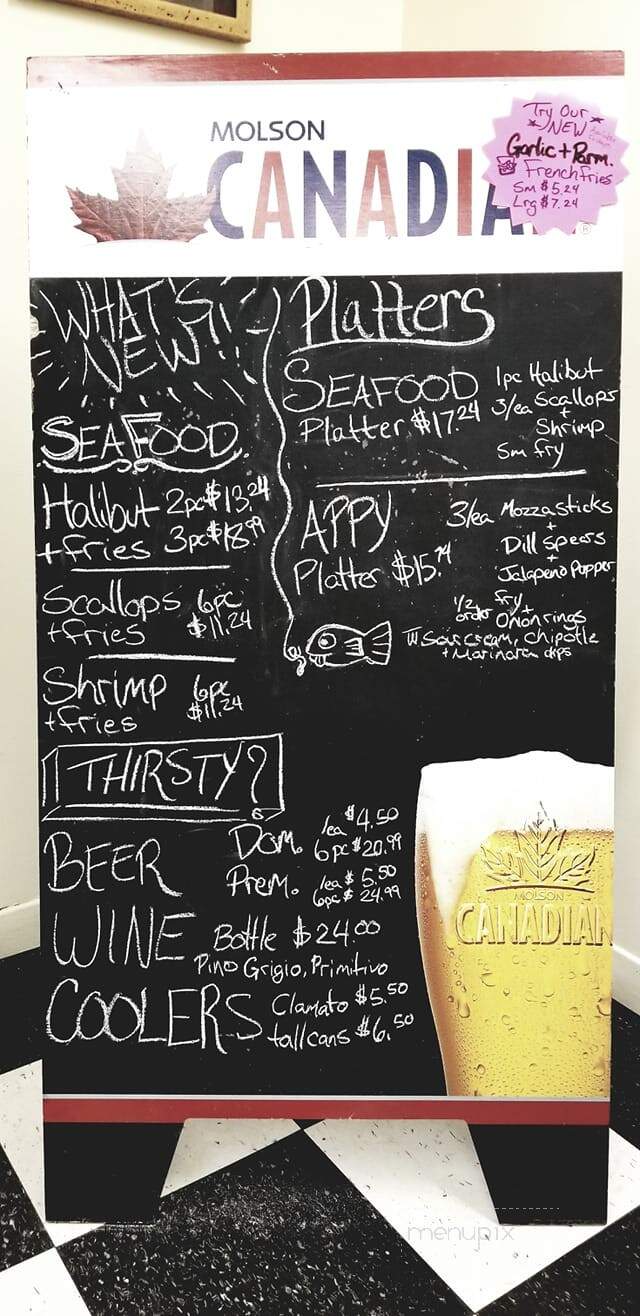 MOLSON
CANADIA
Try Our
NEW
Garlic + Parm.
French fries
Sm $5.24
Lrg $7.24
WHAT'S
NEW!!
SEAFOOD
Halibut 2pc $13.24
+fries 3pc $18.99
Scallops 6pc
+fries $11.24
Shrimp 6pc
+fries $11.24
Platters
SEAFOOD
Platter $17.24
1pc Halibut
3/ea Scallops
+
Shrimp
Sm fry
APPY
Platter $15.
3/ea Mozzasticks
+
Dill spears
+
Jalapeno Popper
1/2 order fry +
Onion rings
w Sour cream, Chipotle
+ Marinara dips
THIRSTY?
BEER
Dom. 1ea $4.50
6pc $20.99
Prem. 1ea $5.50
6pc $24.99
WINE Bottle $24.00
Pino Grigio, Primitivo
COOLERS Clamato $5.50
tall cans $6.50
MOLSON
CANADIAN
menupix